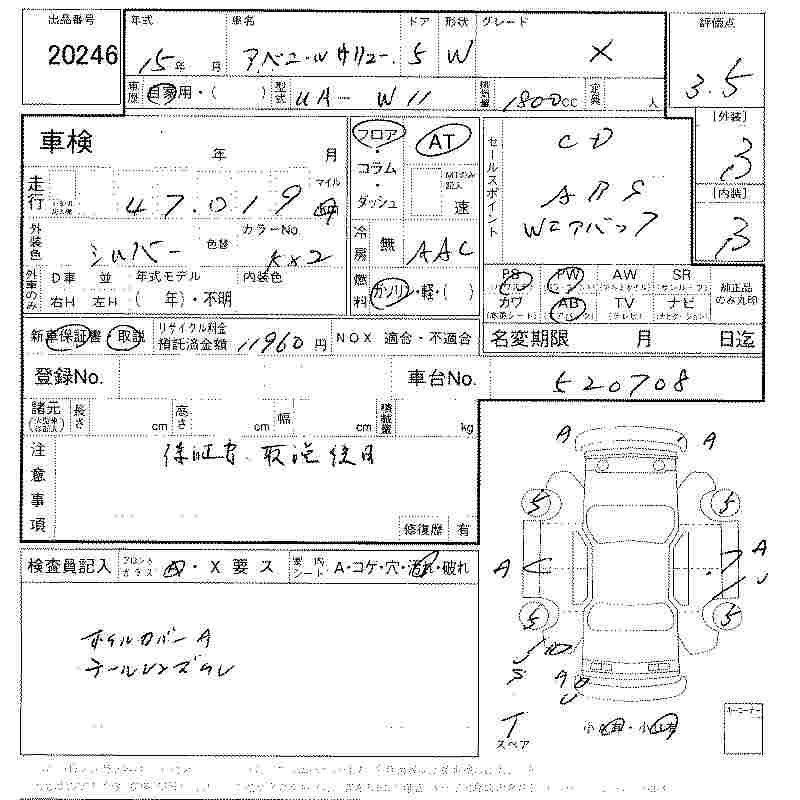 出品番号 年式 車名 ドア 形状 グレード 評価点
20246 15年 月 アベニールサリュー 5 W X 3.5
車歴 自家用・( ) 型式 UA- W11 排気量 1800cc 定員 人
車検 年 月
フロア・コラム・ダッシュ AT MTのみ記入 速
セールスポイント CD
ABS
Wエアバッグ
[外装] B
[内装] B
走行 47,019 マイル
外装色 シルバー 色替 カラーNo. KX2
冷房 無 AAC
外車のみ D車 並 年式モデル 内装色
右H 左H ( 年)・不明
燃料 ガソリン・軽・( )
PS PW AW SR 純正品のみ丸印
カワ AB TV ナビ
(革シート) (エアバック) (テレビ) (ナビゲーション)
新車保証書・取説 リサイクル料金預託済金額 11960円 NOX 適合・不適合
名変期限 月 日迄
登録No. 車台No. 520708
諸元 長さ cm 高さ cm 幅 cm 積載量 kg
注意事項 保証書、取説後日
修復歴 有
検査員記入 フロントガラス A・X 要 ス 要 内 シート A・コゲ・穴・汚れ・破れ
ホイルカバーA
テールレンズワレ
A A
5 5
A A
5 5
A
T
スペア
キーコーナー